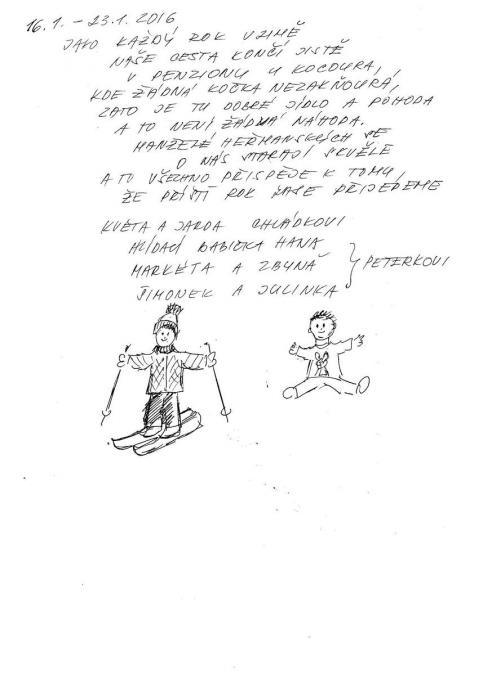 16.1. – 23.1. 2016
JAKO KAŽDÝ ROK V ZIMĚ
NAŠE CESTA KONČÍ JISTĚ
V PENZIONU U KOCOURA,
KDE ŽÁDNÁ KOČKA NEZAKŇOURÁ,
ZATO JE TU DOBRÉ JÍDLO A POHODA
A TO NENÍ ŽÁDNÁ NÁHODA.
MANŽELÉ HEŘMANSKÝCH SE
O NÁS STARAJÍ SKVĚLE
A TO VŠECHNO PŘISPĚJE K TOMU,
ŽE PŘÍŠTÍ ROK ZASE PŘIJEDEME
KVĚTA A JARDA CHLÁDKOVI
HLÍDACÍ BABIČKA HANA
MARKÉTA A ZBYNĚ PETERKOVI
ŠIMONEK A JULINKA